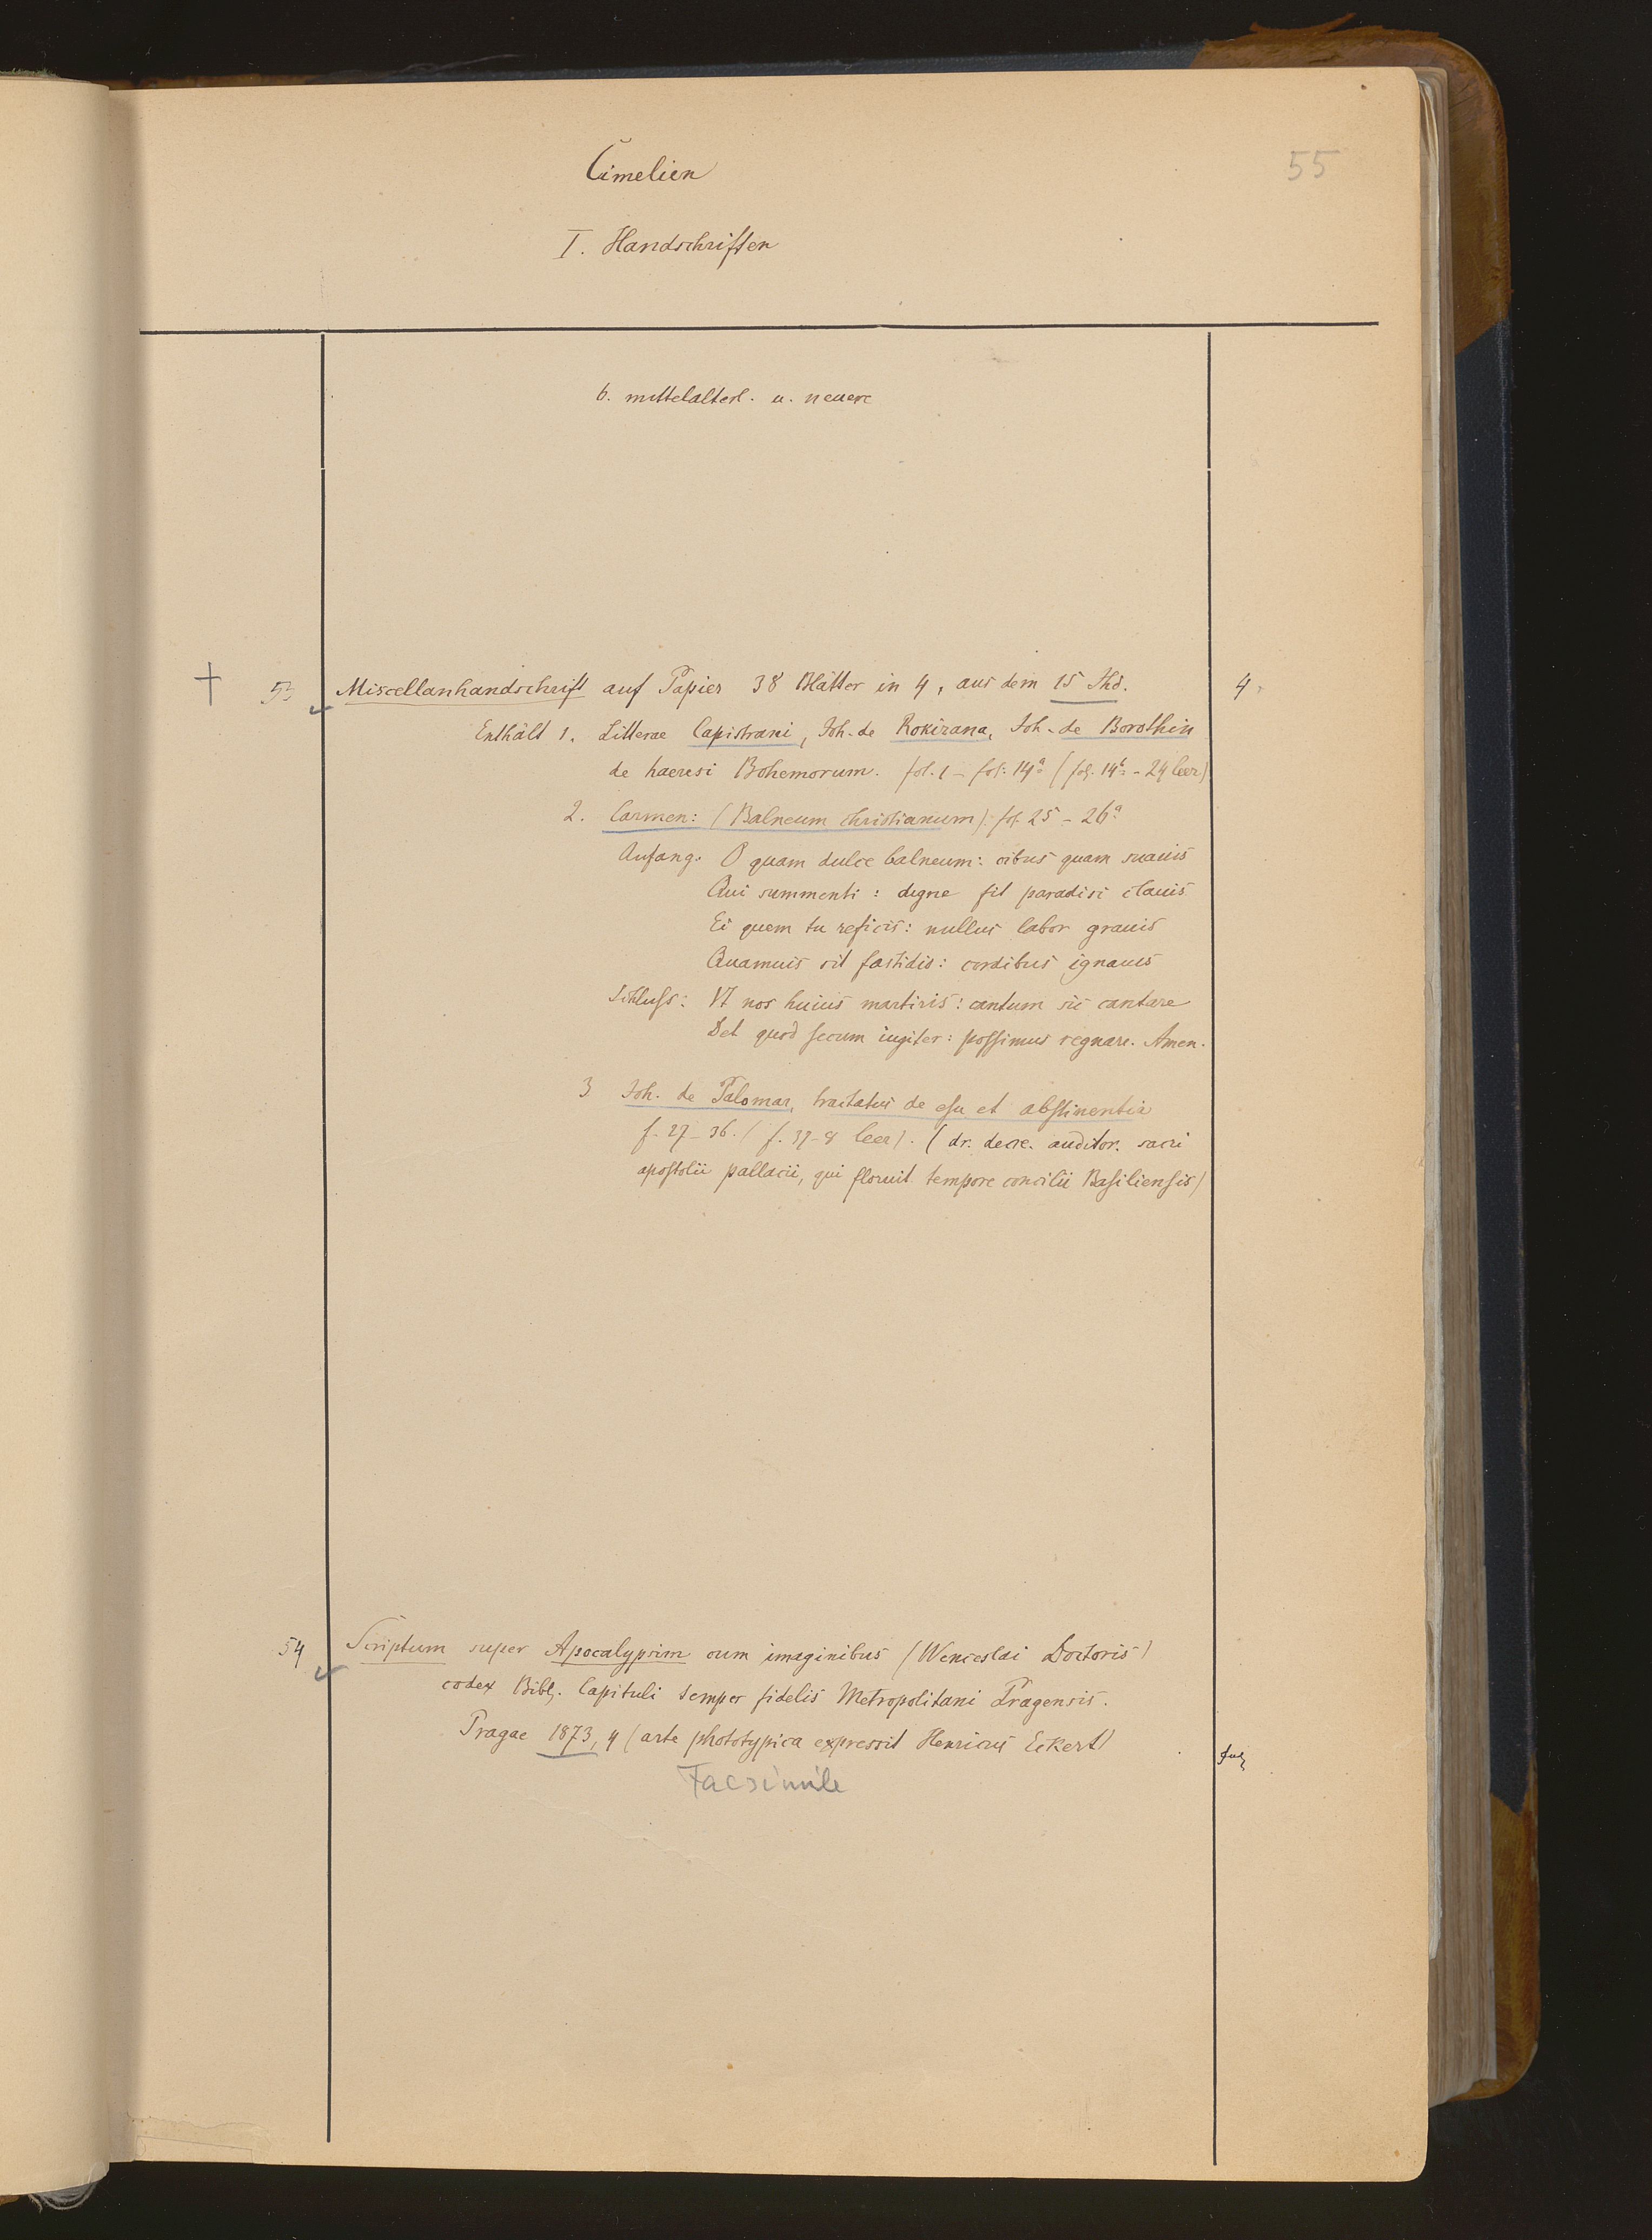 Cimelien
55
I. Handschriften
b. mittelalterl. u. neuere
† 53 Miscellanhandschrift auf Papier 38 Blätter in 4, aus dem 15 Jhd. 4.
Enthält 1. Litterae Capistrani, Joh. de Rokizana, Joh. de Borothin
de haeresi Bohemorum. fol. 1 - fol. 14a (fol. 14b - 24 leer)
2. Carmen: (Balneum christianum). fol. 25 - 26a
Anfang: O quam dulce balneum: cibus quam suauis
Qui summenti: digne fit paradisi clauis
Ei quem tu reficis: nullus labor grauis
Quamuis sit fastidis: cordibus ignauis
Schluſs: Vt nos huius martiris: cantum sic cantare
Det quod secum iugiter: poſſimus regnare. Amen.
3 Joh. de Palomar, tractatus de eſu et abſtinentia
f. 27-36. (f. 37-8 leer). (dr. decre. auditor. sacri
apoſtolii pallacii, qui floruit tempore concilii Baſilienſis)
54 Scriptum super Apocalypsim cum imaginibus (Wenceslai Doctoris)
codex Bibl. Capituli semper fidelis Metropolitani Pragensis.
Pragae 1873, 4 (arte phototypica expressit Henricus Eckert)
Facsimile